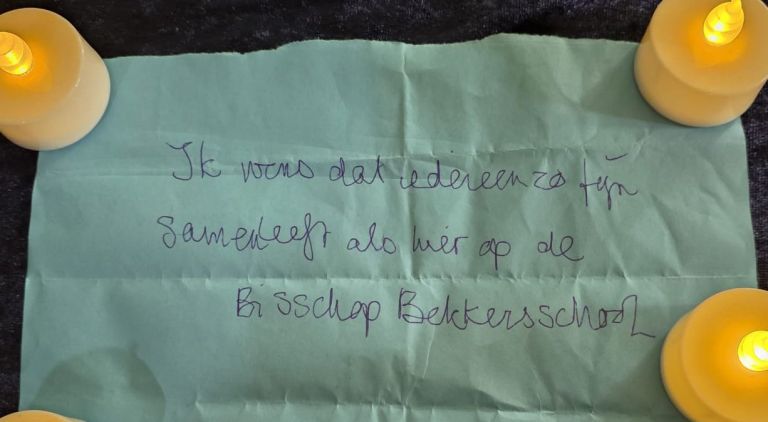 Ik wens dat iedereen zo fijn
samenleeft als hier op de
Bisschop Bekkersschool